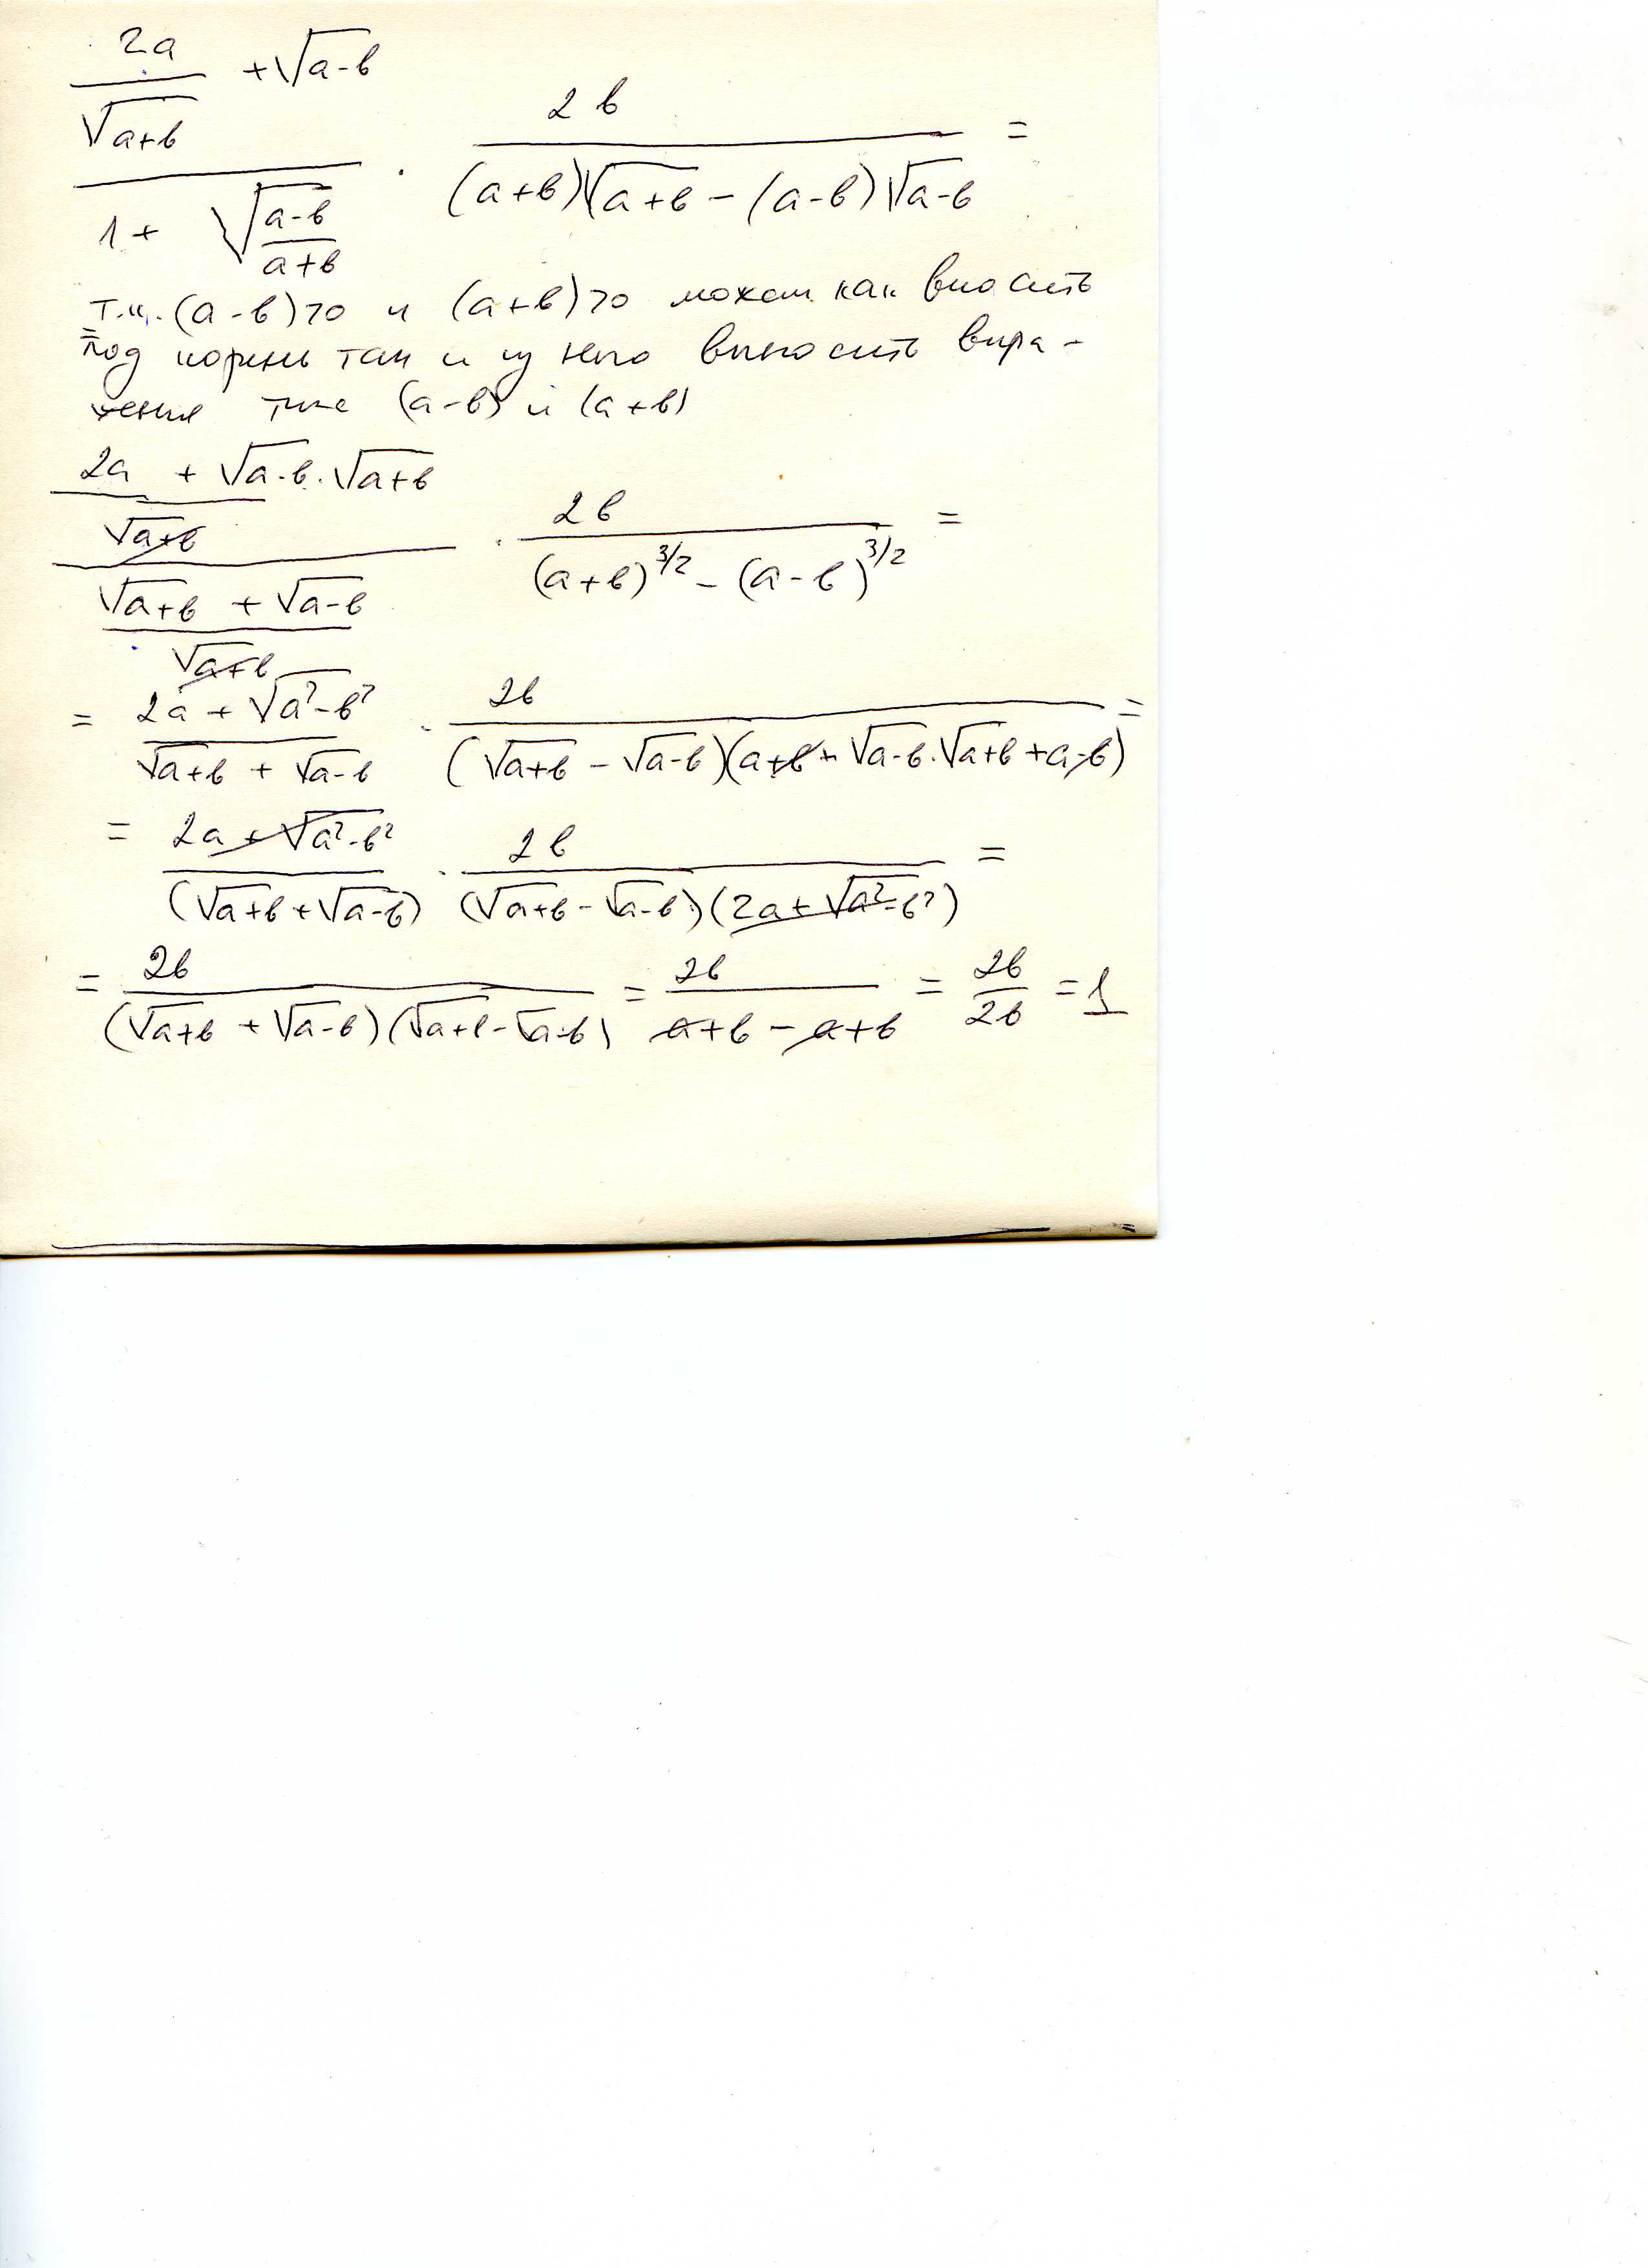 2a/√(a+b) + √(a-b)
1 + √((a-b)/(a+b)) · 2b/((a+b)√(a+b) - (a-b)√(a-b)) =
т.к. (a-b)>0 и (a+b)>0 можем как вносить
под корень так и из него выносить выра-
жения типа (a-b) и (a+b)
= ((2a + √(a-b)·√(a+b))/√(a+b))/((√(a+b) + √(a-b))/√(a+b)) · 2b/((a+b)^3/2 - (a-b)^3/2) =
= (2a + √(a²-b²))/(√(a+b) + √(a-b)) · 2b/((√(a+b) - √(a-b))(a+b + √(a-b)·√(a+b) + a-b)) =
= (2a + √(a²-b²))/(√(a+b) + √(a-b)) · 2b/((√(a+b) - √(a-b))(2a + √(a²-b²))) =
= 2b/((√(a+b) + √(a-b))(√(a+b) - √(a-b))) = 2b/(a+b-a+b) = 2b/2b = 1